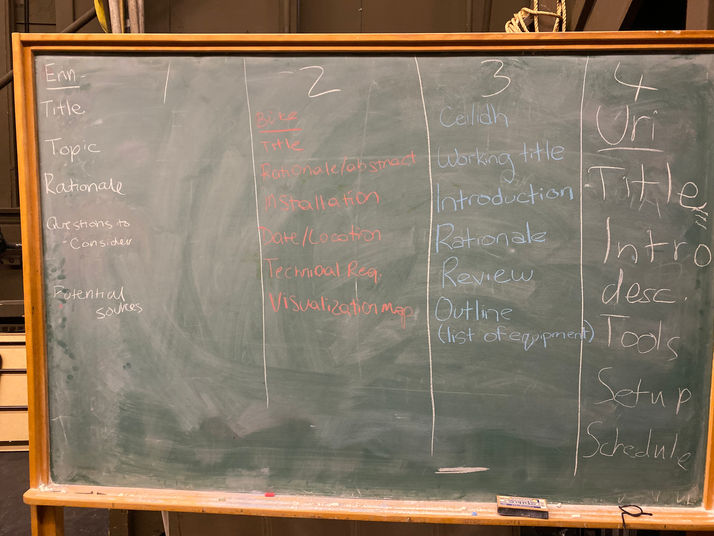 1
Erin -
Title
Topic
Rationale
Questions to
- Consider
Potential
sources
2
Title
Rationale/abstract
Installation
Date/Location
Technical Req.
Visualization map
3
Ceilidh
Working title
Introduction
Rationale
Review
Outline
(list of equipment)
4
Uri
Title
Intro
desc.
Tools
Setup
Schedule